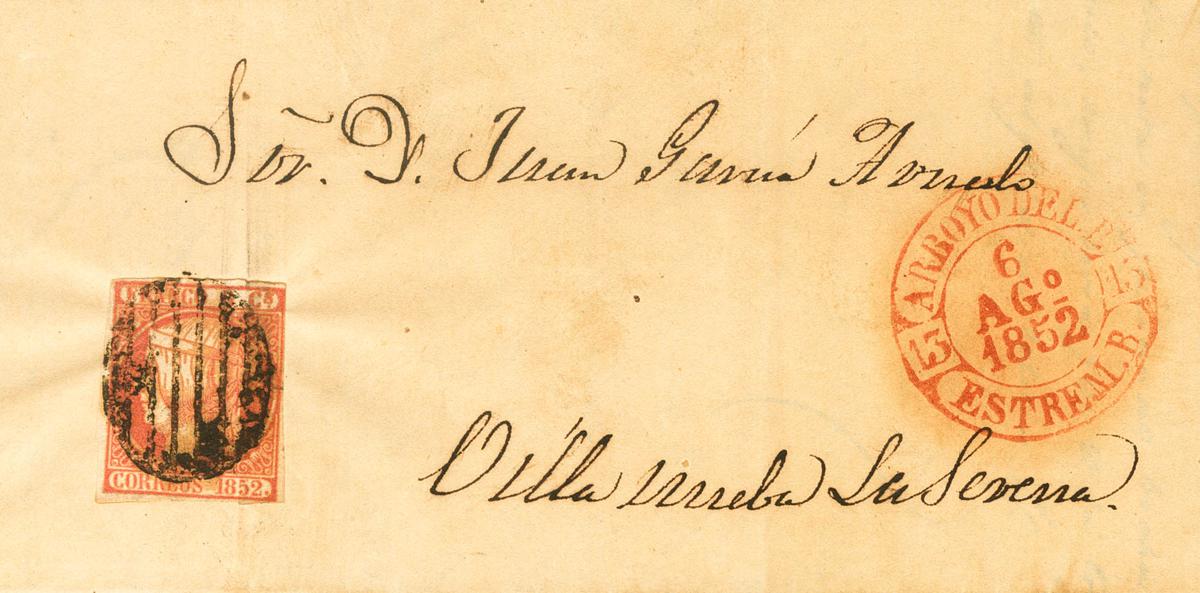 Sõr. D. Juan García Arnedo
ARROYO DEL P.
15
6
AGº
1852
15
ESTREM. B.
CORREOS 1852.
Villa nueba La Serena.